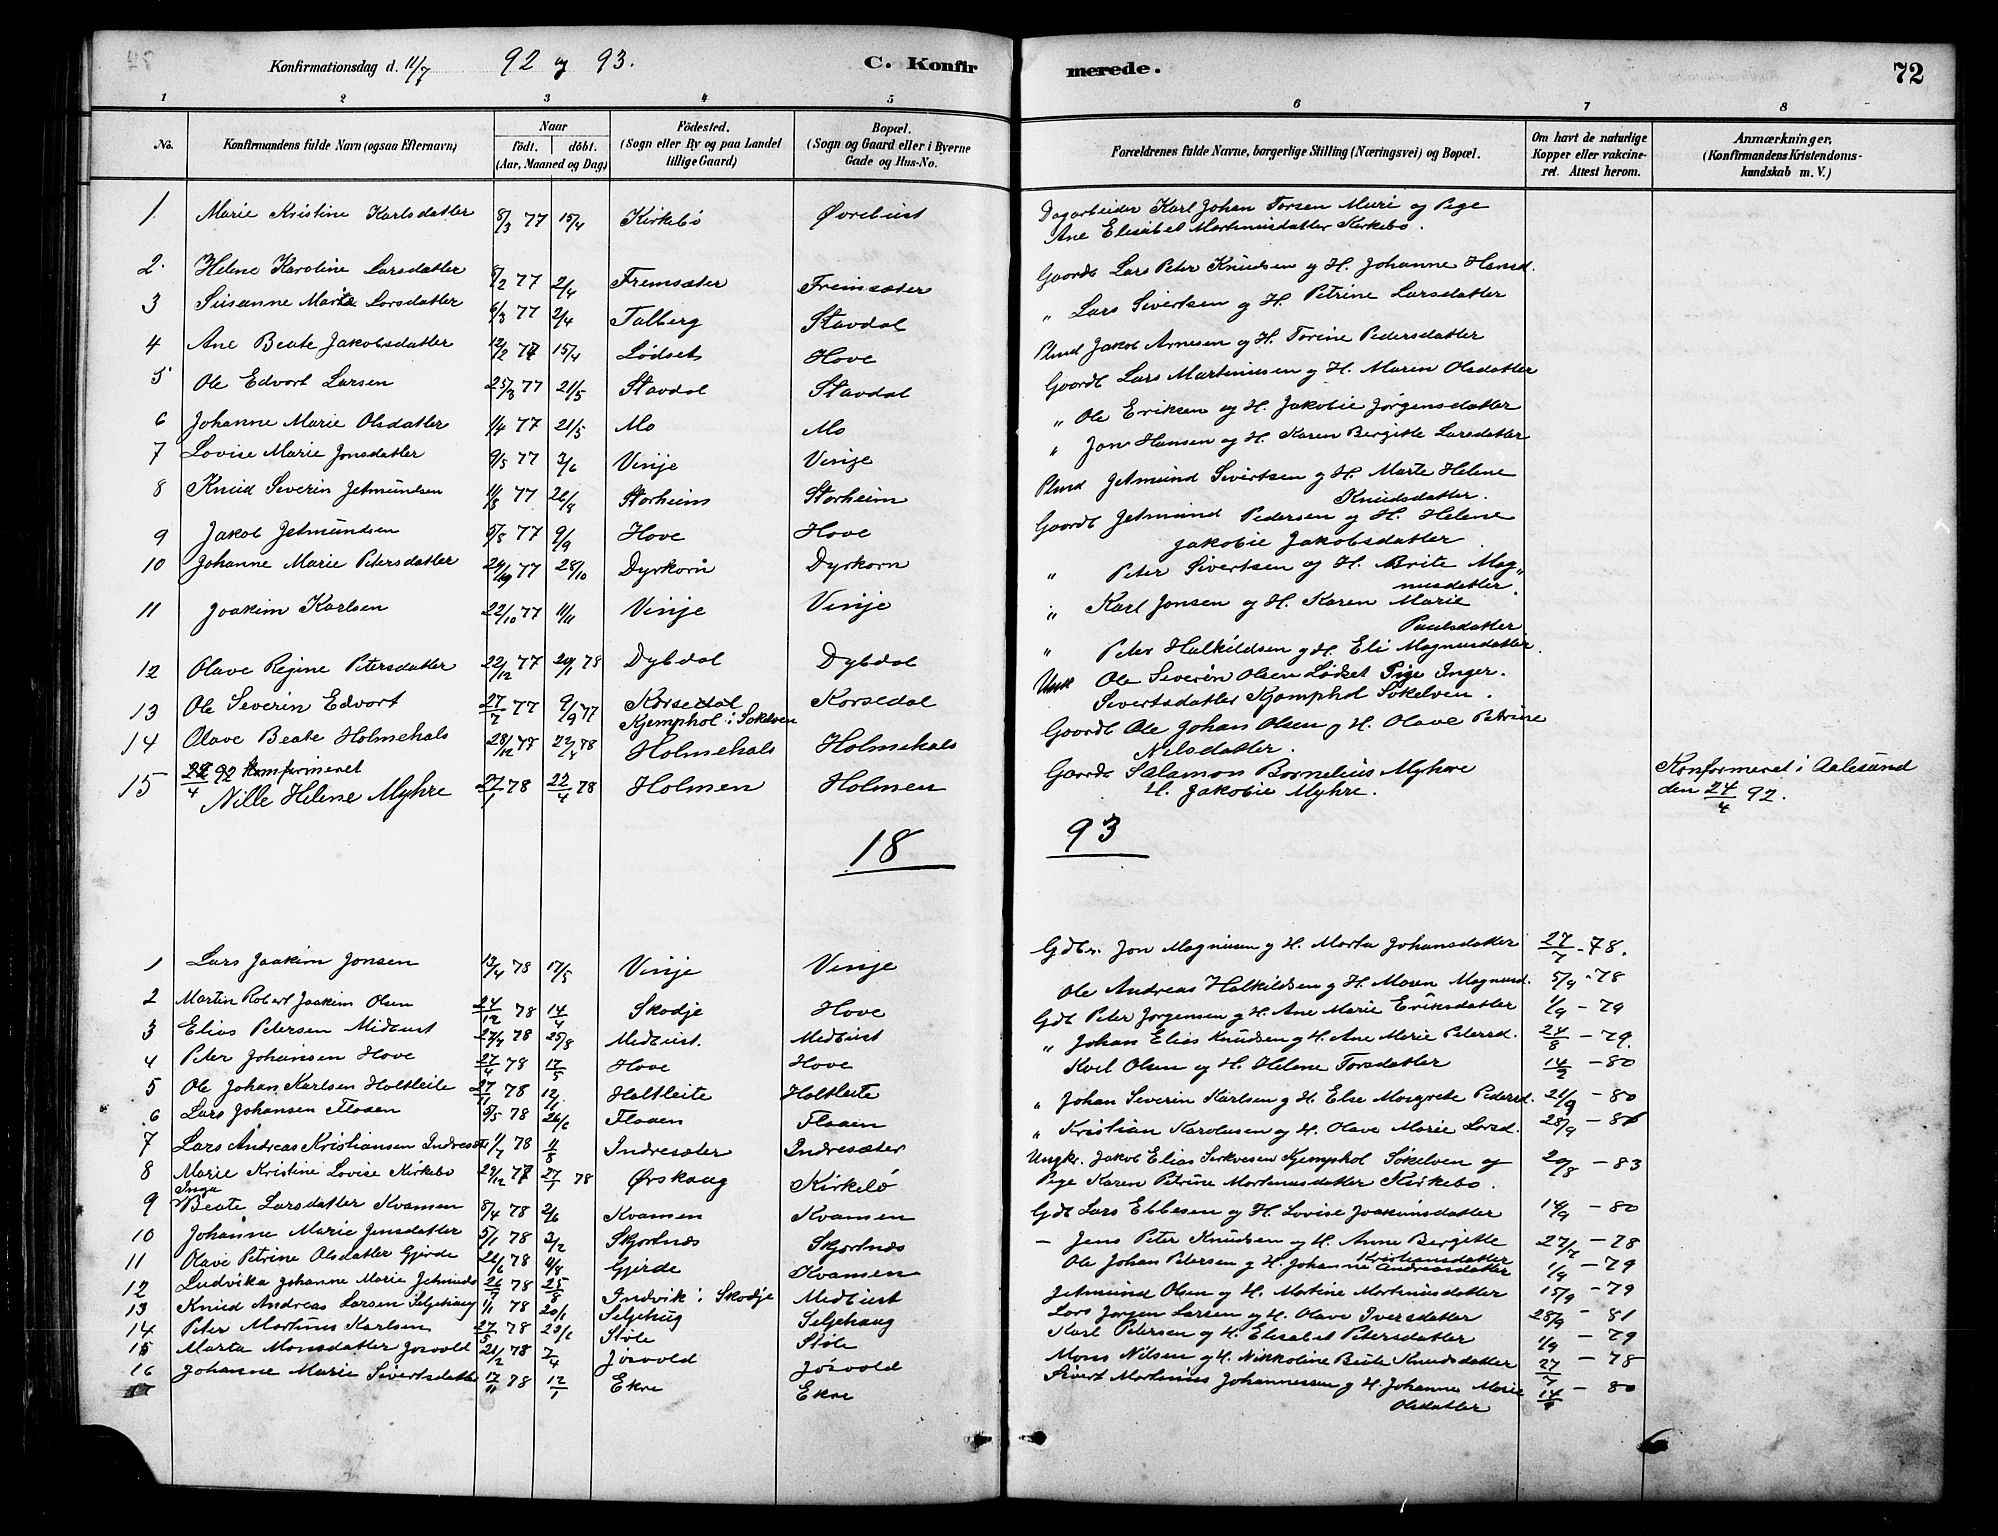 Konfirmationsdag d. 11/7 92 og 93. C. Konfirmerede. 72
1 2 3 4 5 6 7 8
No. Konfirmandens fulde Navn (ogsaa Efternavn) Naar födt. döbt. (Aar, Maaned og Dag) Födested. (Sogn eller By og paa Landet tillige Gaard) Bopæl. (Sogn og Gaard eller i Byerne Gade og Hus-No. Forældrenes fulde Navne, borgerlige Stilling (Næringsvei) og Bopæl. Om havt de naturlige Kopper eller vakcineret. Attest herom. Anmærkninger, (Konfirmandens Kristendomskundskab m. V.)
1. Marie Kristine Karlsdatter 8/3 77 15/4 Kirkebö Øvrebust Dagarbeider Karl Johan Torsen Muri og Pige
Ane Elisabet Martinusdatter Kirkebö.
2. Helene Karoline Larsdatter 8/2 77 2/4 Fremsæter Fremsæter Gaardb Lars Peter Knudsen og H. Johanne Hansd.
3 Susanne Marta Larsdatter 6/3 77 2/4 Talberg Stavdal " Lars Sivertsen og H. Petrine Larsdatter
4 Ane Beate Jakobsdatter 12/2 77 15/4 Lödset Hove Plmd Jakob Arnesen og H. Torine Pedersdatter
5 Ole Edvart Larsen 25/3 77 21/5 Stavdal Stavdal Gaardb Lars Martinusen og H. Maren Olsdatter
6 Johanne Marie Olsdatter 1/4 77 21/5 Mo Mo " Ole Eriksen og H. Jakobie Jörgensdatter
7 Lovise Marie Jonsdatter 9/5 77 3/6 Vinje Vinje " Jon Hansen og H. Karen Bergitte Larsdatter
8 Knud Severin Jetmundsen 11/8 77 26/8 Storheim Storheim Plmd Jetmund Sivertsen og H. Marte Helene
Knudsdatter.
9 Jakob Jetmundsen 5/8 77 9/9 Hove Hove Gaardb Jetmund Pedersen og H. Helene
Jakobie Jakobsdatter
10 Johanne Marie Petersdatter 77 28/10 Dyrkorn Dyrkorn " Peter Sivertsen og H. Brite Mag-
nusdatter.
11 Joakim Karlsen 22/10 77 11/11 Vinje Vinje " Karl Jonsen og H. Karen Marie
Paulsdatter
12 Olave Regine Petersdatter 22/12 77 20/1 78 Dybdal Dybdal " Peter Halkildsen og H. Eli Magnusdatter.
13 Ole Severin Edvart 27/7 77 9/9 77 Korsedal Korsedal Unk Ole Severin Olsen Lödset Pige Inger.
Kjemphol i Sökelven Sivertsdatter Kjamphol Sökelven.
14 Olave Beate Holmehals 28/12 77 22/4 78 Holmehals Holmehals Gaardb Ole Johan Olsen og H. Olave Petrine
Nilsdatter.
24/4 92 Konfirmeret
15 Nille Helene Myhre 27/1 78 22/4 78 Holmen Holmen Gaardb Salamon Bornelius Myhre
H. Jakobie Myhre.
Konformeret i Aalesund
den 24/4 92.
18 93
1 Lars Joakim Jonsen 13/4 78 17/5 Vinje Vinje Gdbr. Jon Magnusen og H. Marta Johansdatter 27/7 - 78.
2 Martin Robert Joakim Olsen 24/12 78 14/4 Skodje Hove Ole Andreas Halkildsen og H. Maren Magnusd. 5/9 - 78
3 Elias Petersen Midtust 27/7 78 25/8 Medtust. Medtust Gdb Peter Jörgensen og H. Ane Marie Eriksdatter 1/9 - 79
4 Peter Johansen Hove 27/4 78 17/5 Hove Hove " Johan Elias Knudsen og H. Ane Marie Petersd. 24/8 - 79.
5 Ole Johan Karlsen Holtleite 27/11 78 12/1 Holtleite Holtleite Karl Olsen og H. Helene Torsdatter 14/2 - 80
6 Lars Johansen Flaaen 5/5 78 26/6 Flaaen Flaaen " Johan Severin Karlsen og H Else Margrete Pedersd. 21/9 - 80
7 Lars Andreas Kristiansen Indresæte 1/7 78 11/8 Indresæter Indresæter " Kristian Karolusen og H. Olave Marie Larsd. 28/9 - 86
8 Marie Kristine Lovise Kirkebö 29/12 77 27/1 78 Ørskaug Kirkebö Ungkr. Jakob Elias Kjemphol Sökelven og 20/8 - 83
Pige Karen Petrine Martinusdatter Kirkebö.
Inga
9 Beate Larsdatter Kvamsen 8/4 78 2/6 Kvamsen Kvamsen Gdb Lars Ebbesen og H. Lovise Joakimsdatter 14/9 - 80
10 Johanne Marie Jensdatter 5/1 78 3/2 Skjortnæs Skjortnæs - Jens Peter Knudsen og H. Anne Bergitte 27/7 - 78
11 Olave Petrine Olsdatter Gjerde 26/6 78 4/8 Gjerde Kvamsen Ole Johan Petersen og H. Johanne Kristiansdatter Andreasdatter 1/9 - 79
12 Ludvika Johanne Marie Jetmunds 26/7 78 25/8 Indvik i Skodje Medtust Jetmund Olsen og H. Martine Martinusdatter 15/9 - 79
13 Knud Andreas Larsen Seljehaug 1/1 78 20/1 Seljehug Seljehaug Lars Jörgen Larsen og H. Olave Iversdatter 28/9 - 81
14 Peter Martinus Karlsen 27/5 78 23/6 Støle Støle Karl Petersen og H. Elisabet Petersdatter 1/9 - 79
15 Marta Monsdatter Jösvold 21/2 78 7/4 Jösvold Jösvold Mons Nilsen og H. Nikkoline Beate Knudsdatter 27/7 - 78
16 Johanne Marie Sivertsdatter 17/11 78 12/1 Ekre Ekre Sivert Martinus Johannessen og H. Johanne Marie 14/9 - 80
Olsdatter